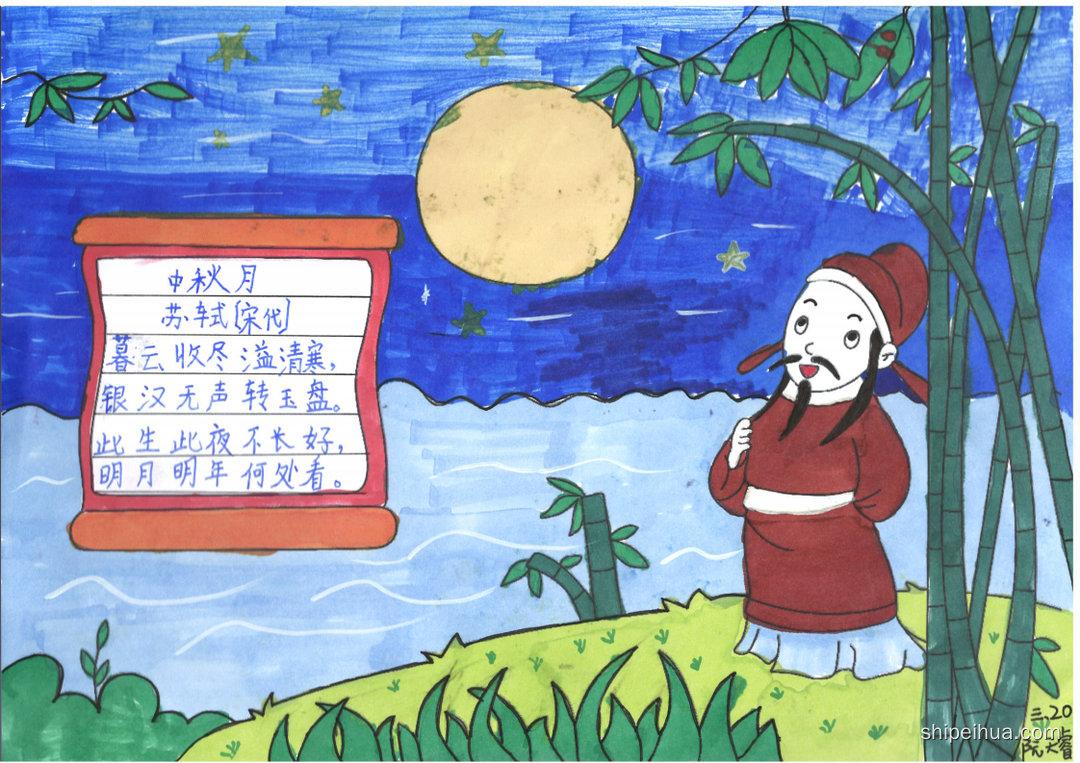 中秋月
苏轼[宋代]
暮云收尽溢清寒，
银汉无声转玉盘。
此生此夜不长好，
明月明年何处看。
三.20
shipeihua.com